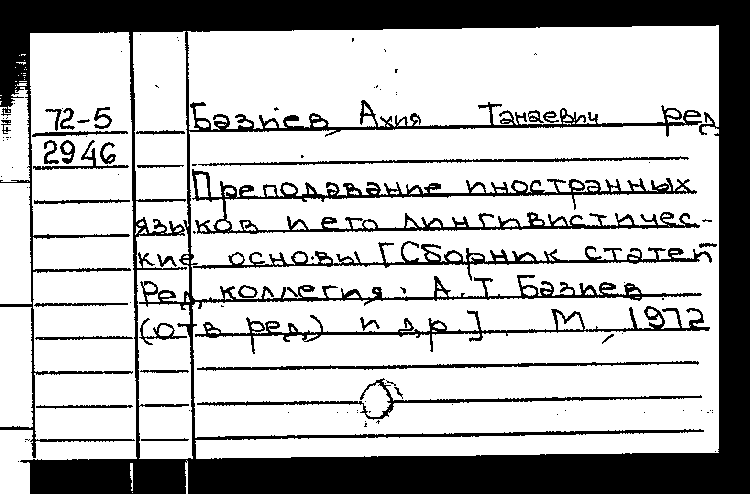 72-5 Базиев, Ахия Танаевич ред.
2946
Преподавание иностранных
языков и его лингивистичес-
кие основы [Сборник статей
Ред. коллегия: А.Т. Базиев
(отв. ред.) и др.] М., 1972